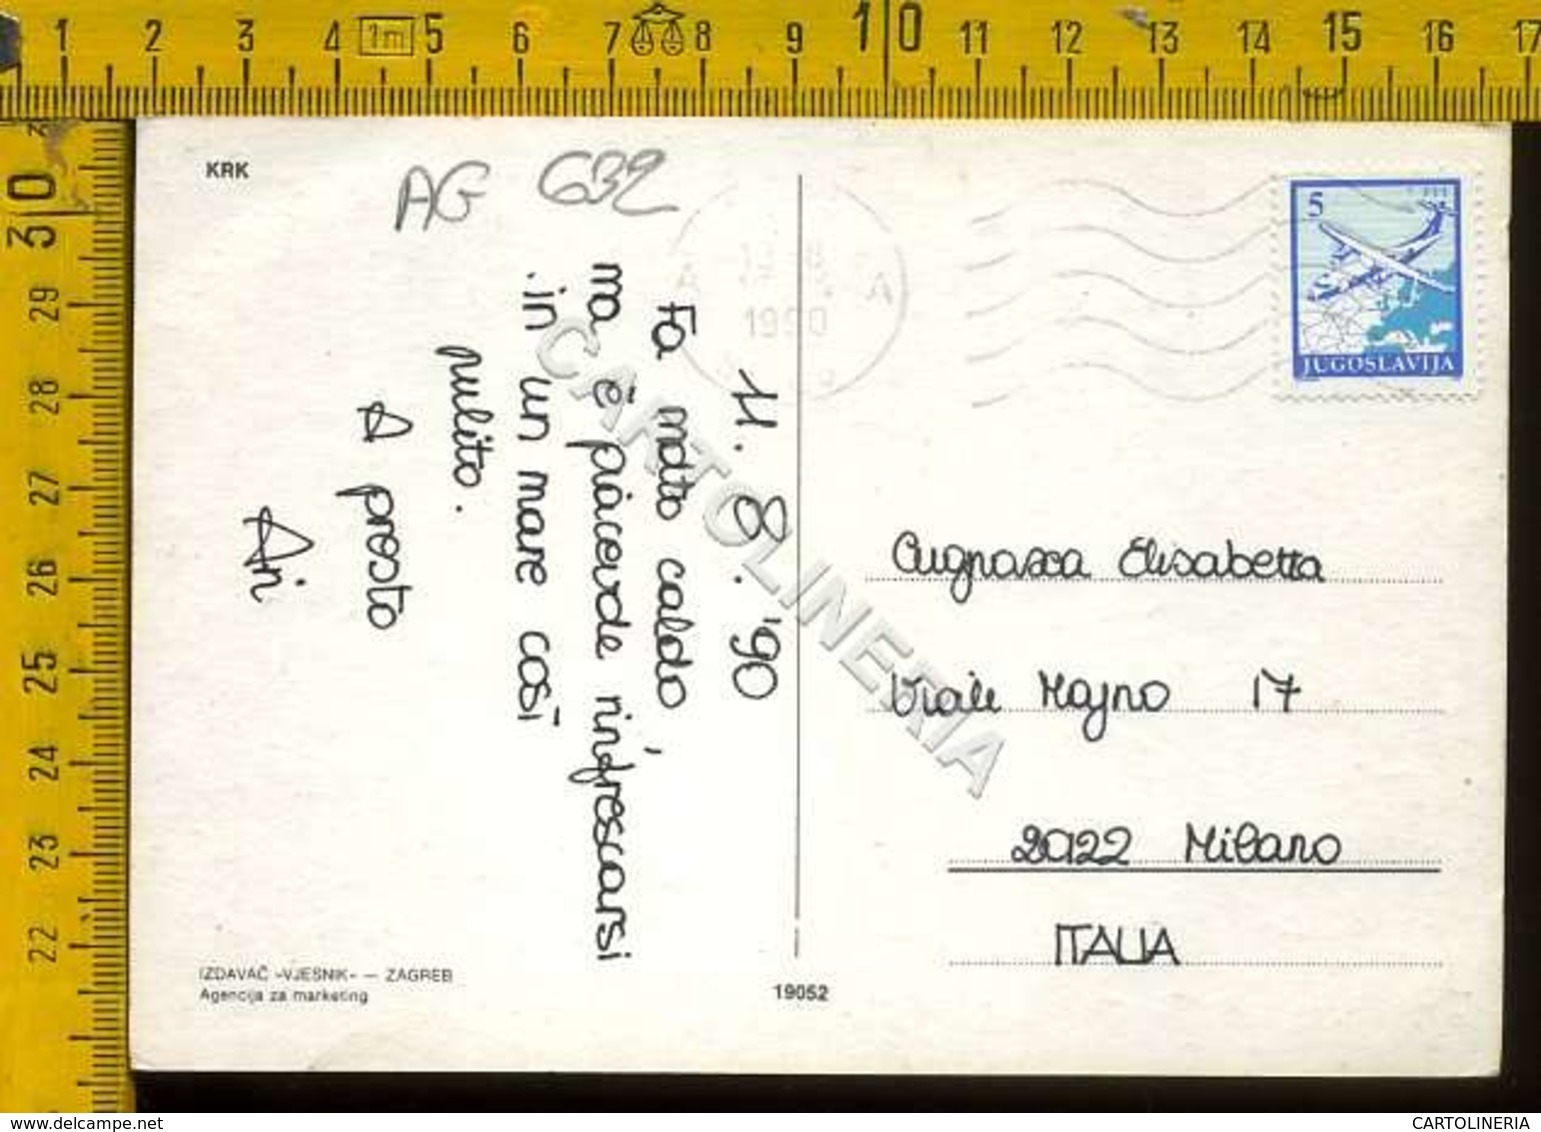 1 2 3 4 1m 5 6 7 8 9 10 11 12 13 14 15 16 17
30 29 28 27 26 25 24 23 22
KRK
AG 632
11. 8. '90
Fa molto caldo,
ma è piacevole rinfrescarsi
in un mare così
pulito.
A presto
Ari
1990
A A
5
JUGOSLAVIJA
Cugnasca Elisabetta
Viale Majno 17
20122 Milano
ITALIA
IZDAVAČ »VJESNIK« — ZAGREB
Agencija za marketing
19052
CARTOLINERIA
CARTOLINERIA